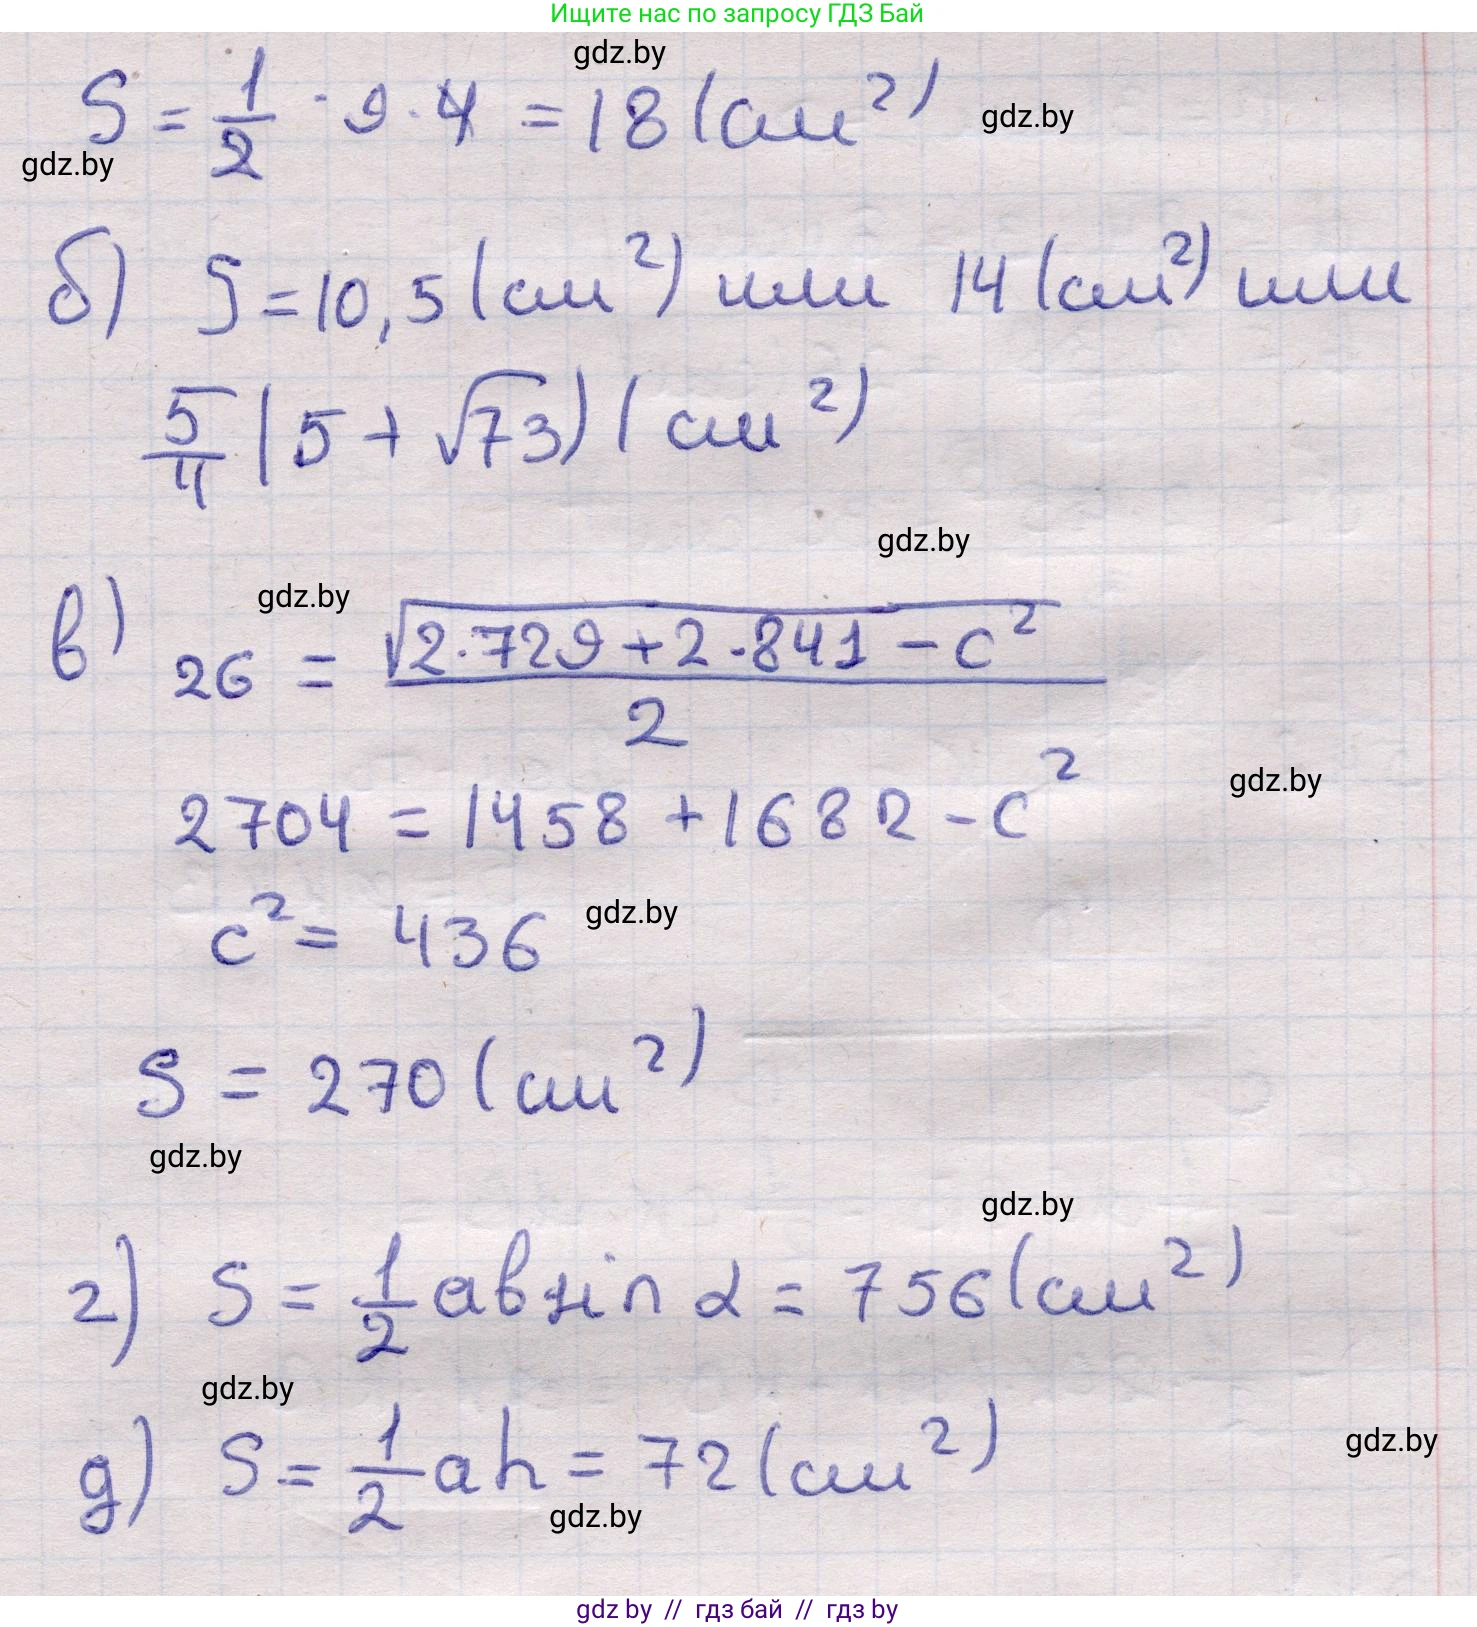 Ищите нас по запросу ГДЗ Бай
gdz.by
S = 1/2 · 9 · 4 = 18 (см²)
gdz.by
gdz.by
б) S = 10,5 (см²) или 14 (см²) или
5/4 (5 + √73) (см²)
gdz.by
gdz.by
в) 26 = √(2·729 + 2·841 - c²) / 2
gdz.by
2704 = 1458 + 1682 - c²
c² = 436
gdz.by
S = 270 (см²)
gdz.by
gdz.by
г) S = 1/2 ab sin α = 756 (см²)
gdz.by
д) S = 1/2 ah = 72 (см²)
gdz.by
gdz.by
gdz by // гдз бай // гдз by